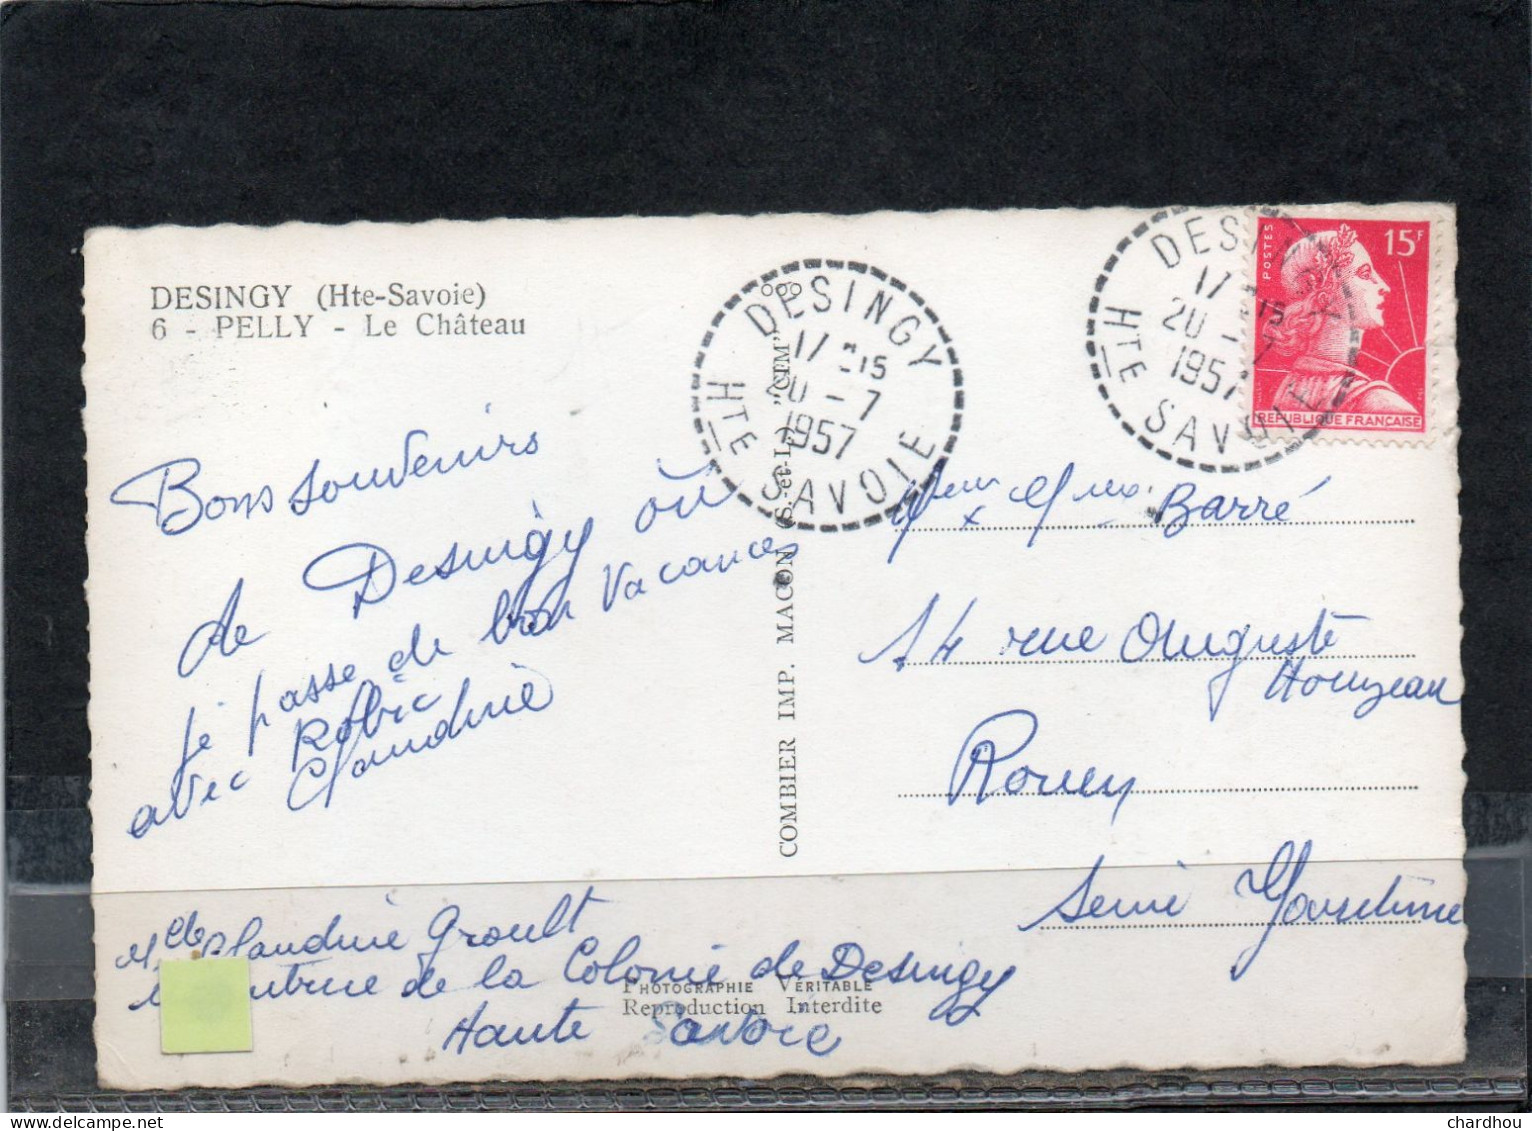 DESINGY (Hte-Savoie)
6 - PELLY - Le Château
Bons souvenirs
de Desingy où
je passe de bon vacances
avec Robic
Claudine
Mlle Claudine Groult
de la Colonie de Desingy
Haute Savoie
PHOTOGRAPHIE VÉRITABLE
Reproduction Interdite
COMBIER IMP. MACON (S.-et-L.) "CIM"
DESINGY
17 - 15
20 - 7
1957
HTE SAVOIE
DESINGY
17 - 15
20 - 7
1957
HTE SAVOIE
POSTES
15F
REPUBLIQUE FRANÇAISE
Barré
14 rue Auguste
Houzeau
Rouen
Seine Maritime
chardhou